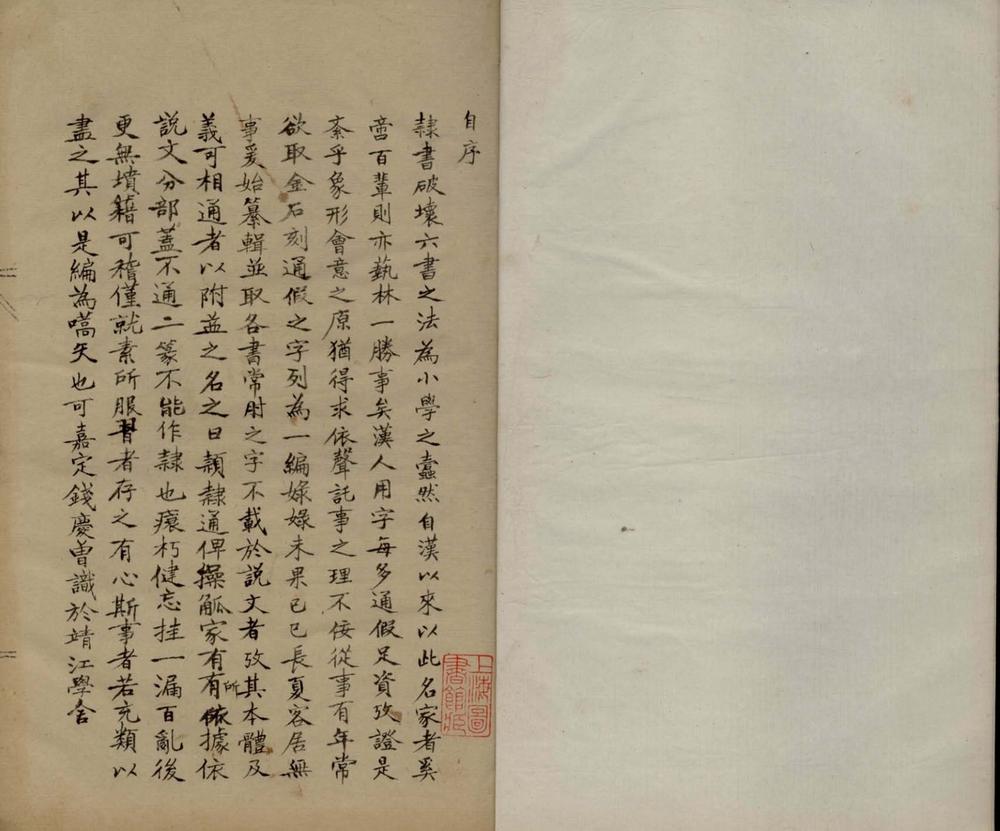 自序
隸書破壞六書之法為小學之蠹然自漢以來以此名家者奚
啻百輩則亦藝林一勝事矣漢人用字每多通假足資攷證是
紊乎象形會意之原猶得求依聲託事之理不佞從事有年常
欲取金石刻通假之字列為一編婇婇未果己巳長夏客居無
事爰始纂輯並取各書常用之字不載於說文者攷其本體及
義可相通者以附益之名之曰類隸通俾操觚家有有所依據依
說文分部蓋不通二篆不能作隸也癏朽健忘挂一漏百亂後
更無墳籍可稽僅就素所服習者存之有心斯事者若充類以
盡之其以是編為嚆矢也可嘉定錢慶曾識於靖江學舍
上海圖書館臧